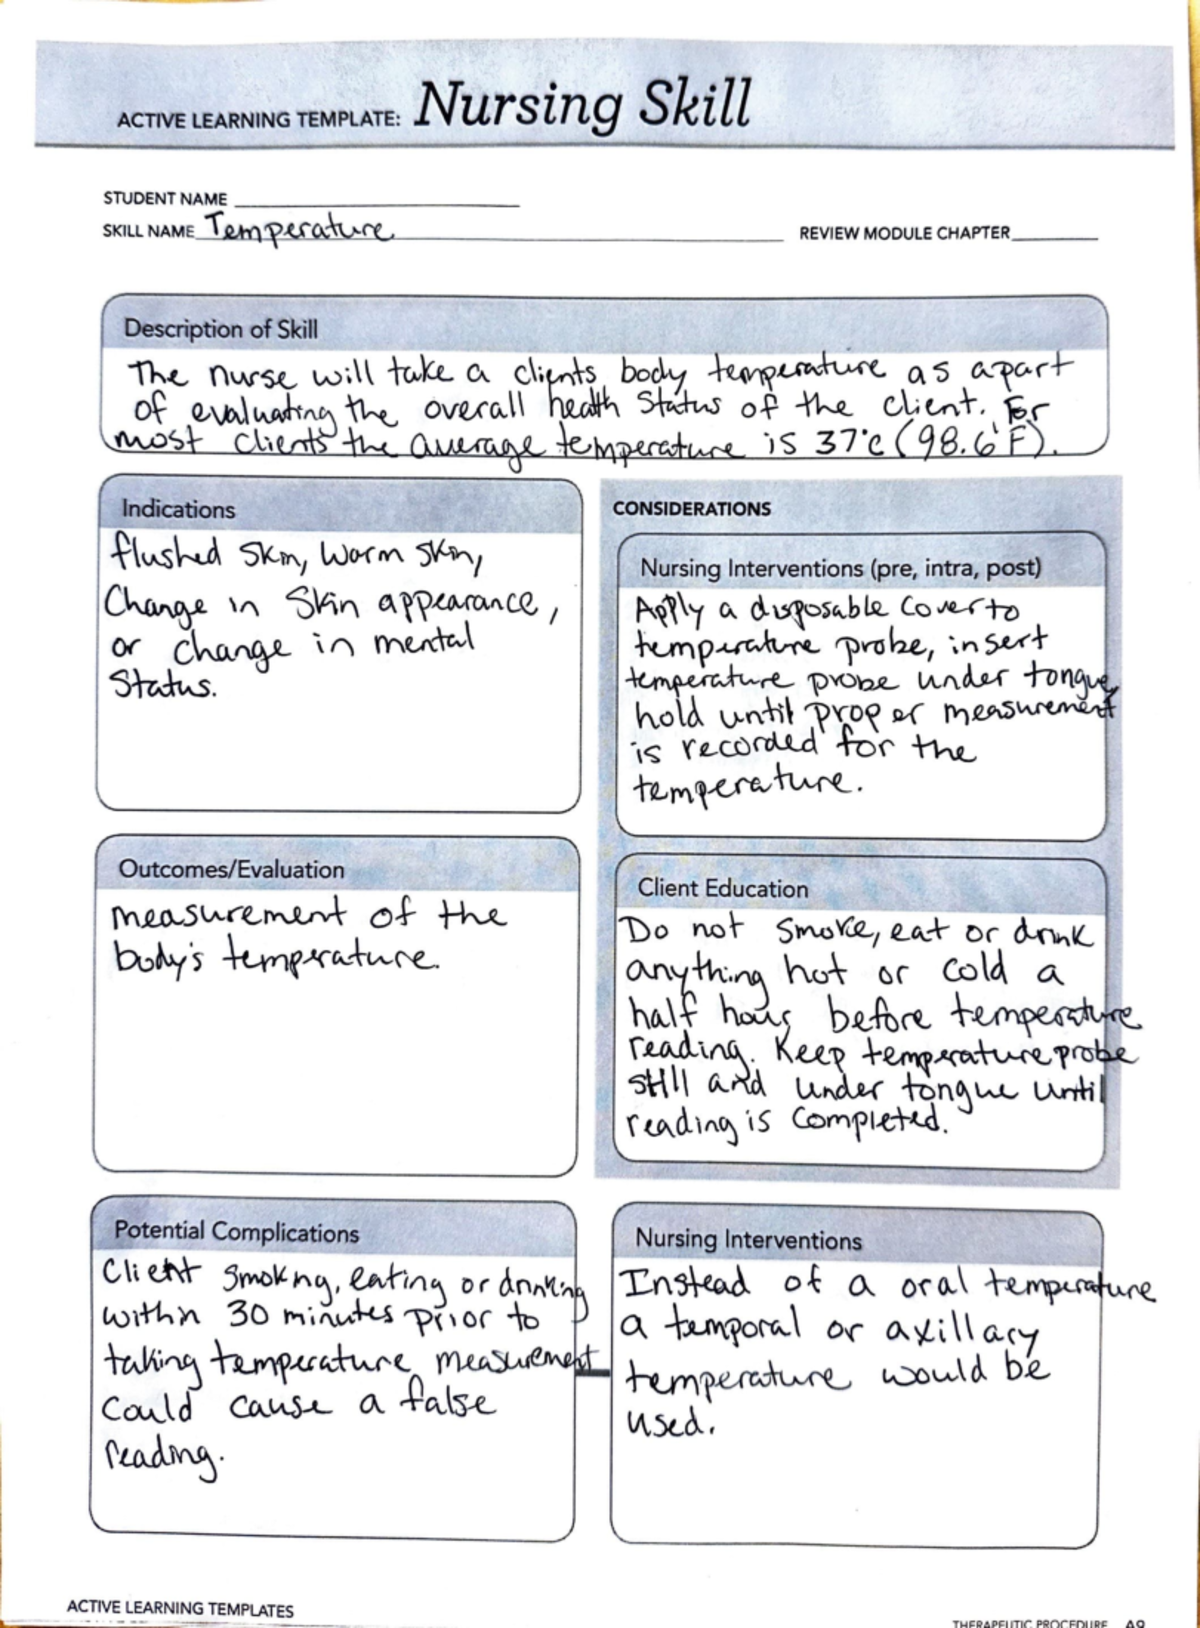 ACTIVE LEARNING TEMPLATE: Nursing Skill
STUDENT NAME
SKILL NAME Temperature
REVIEW MODULE CHAPTER
Description of Skill
The nurse will take a clients body temperature as apart
of evaluating the overall health Status of the client. For
most clients the average temperature is 37°C (98.6°F).
Indications
flushed Skin, Warm Skin,
Change in Skin appearance,
or change in mental
Status.
CONSIDERATIONS
Nursing Interventions (pre, intra, post)
Apply a disposable cover to
temperature probe, insert
temperature probe under tongue,
hold until proper measurement
is recorded for the
temperature.
Outcomes/Evaluation
measurement of the
body's temperature.
Client Education
Do not smoke, eat or drink
anything hot or cold a
half hour before temperature
reading. Keep temperature probe
still and under tongue until
reading is completed.
Potential Complications
Client smoking, eating or drinking
within 30 minutes prior to
taking temperature measurement
Could cause a false
reading.
Nursing Interventions
Instead of a oral temperature
a temporal or axillary
temperature would be
used.
ACTIVE LEARNING TEMPLATES
THERAPEUTIC PROCEDURE A9